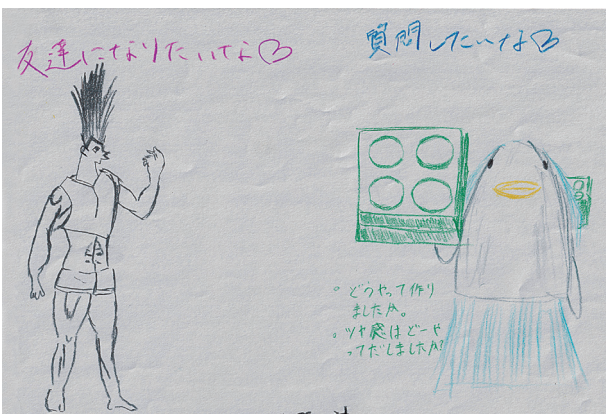 友達になりたいなぁ♡
質問したいなぁ♡
。どうやって作り
ましたか。
。ツヤ感はどーや
ってだしましたか?